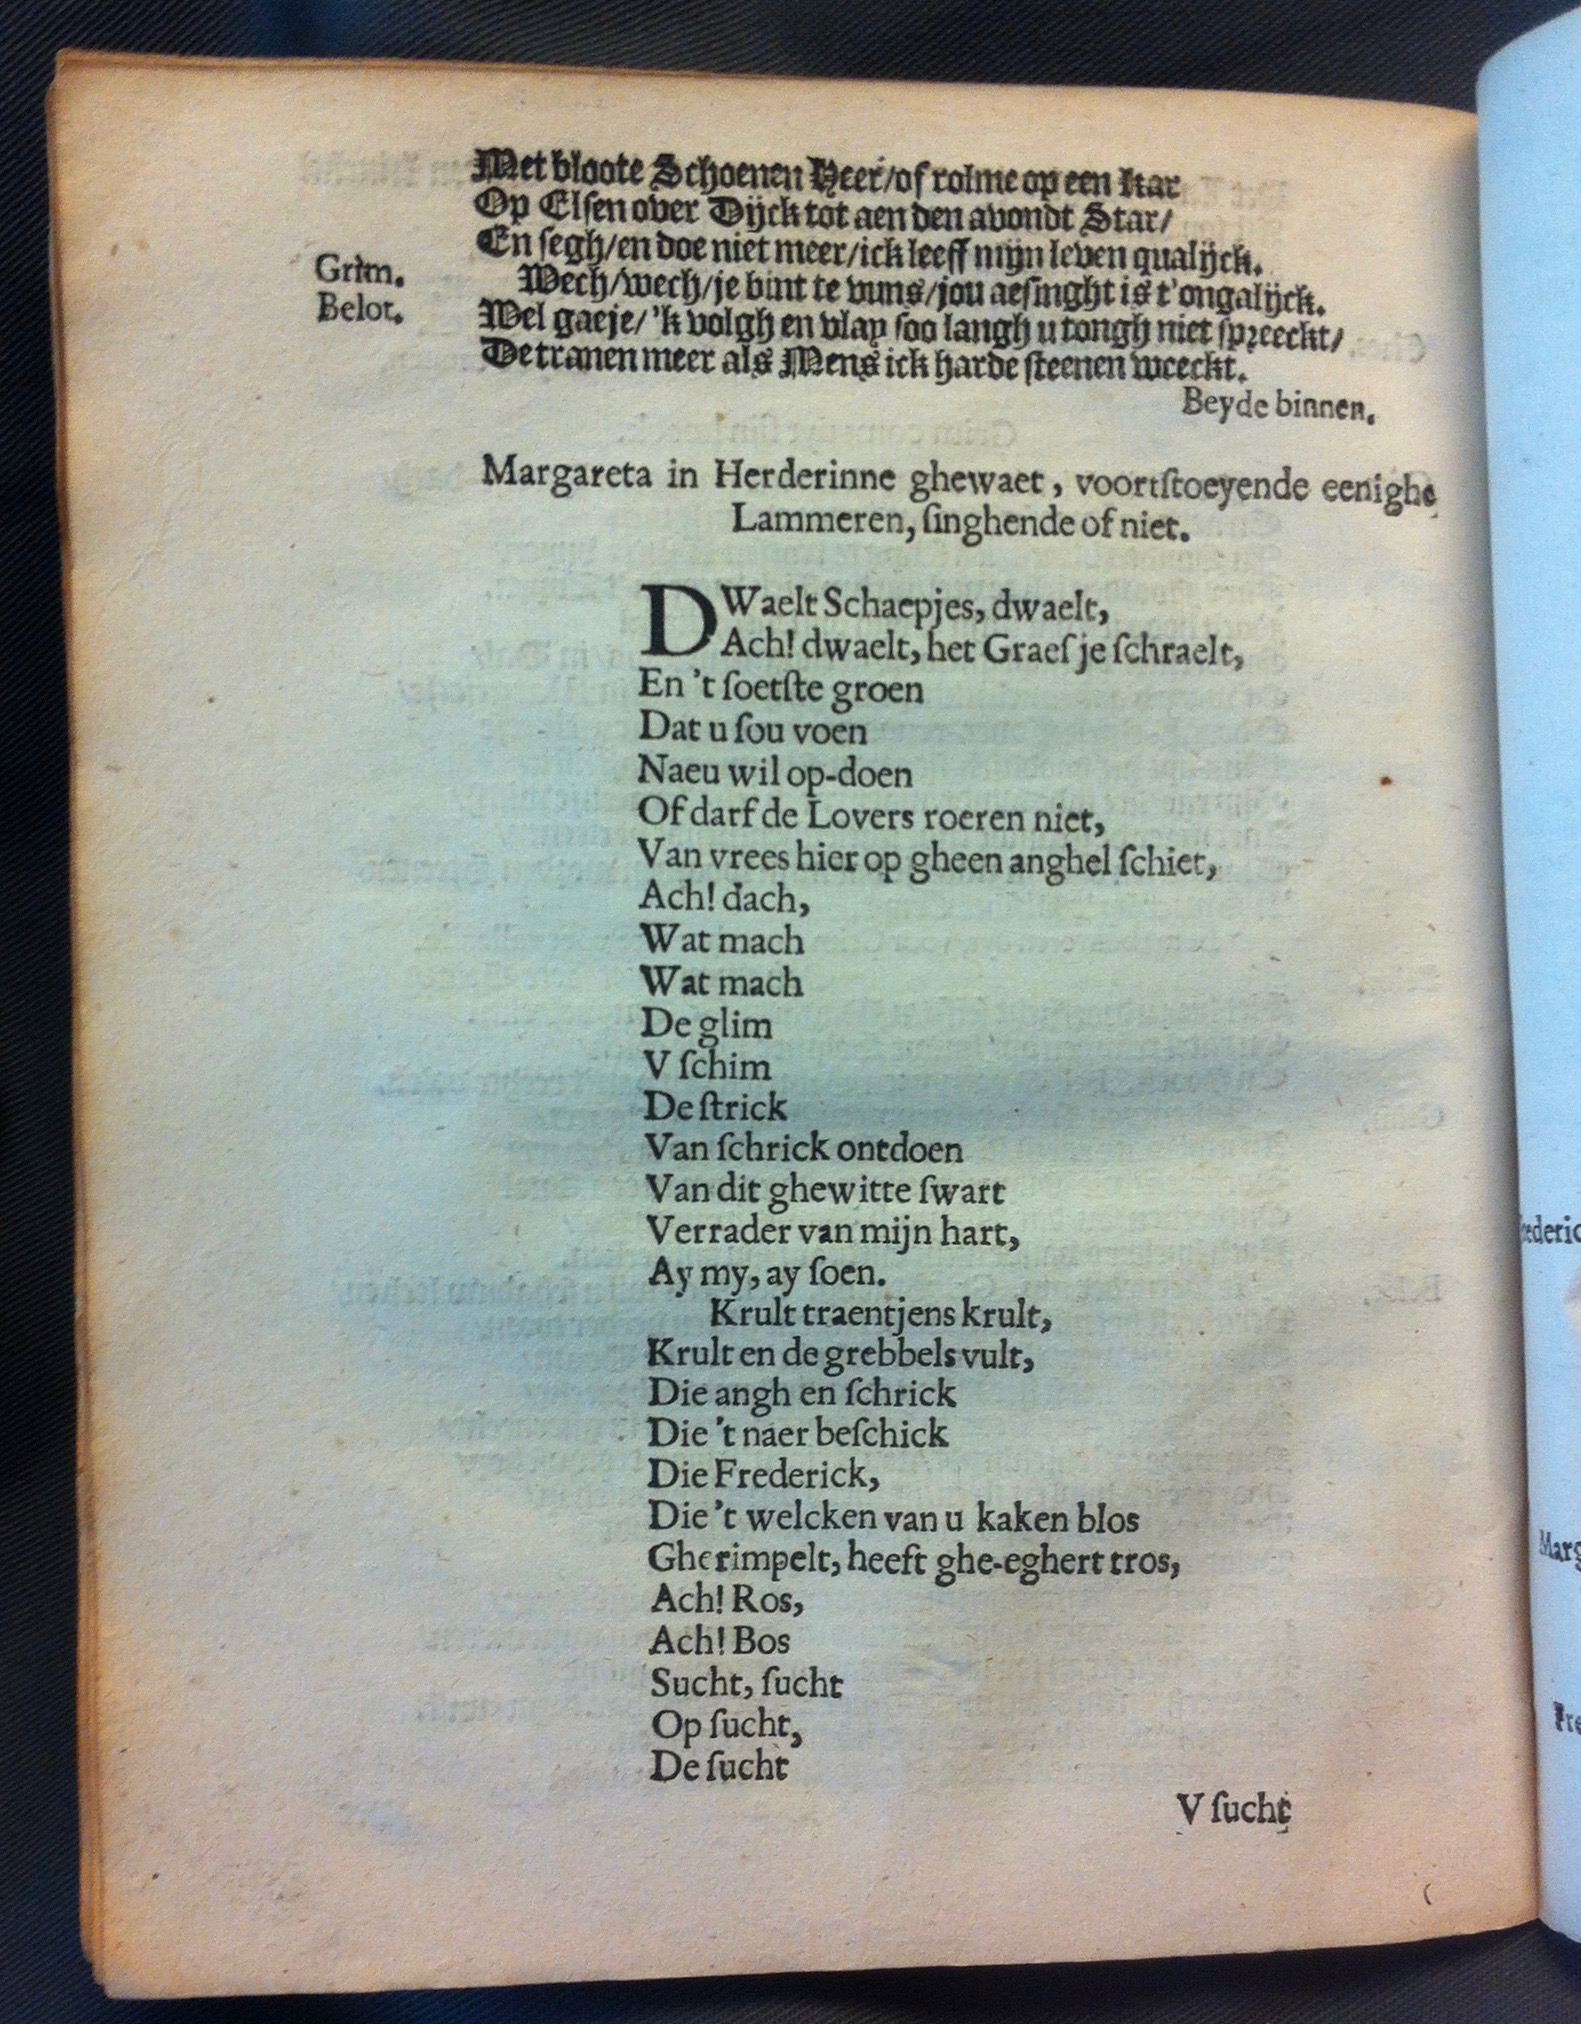 Met bloote Schoenen Heer/of rolme op een Kar
Op Elsen over Dijck tot aen den avondt Star/
En segh/en doe niet meer/ick leeff mijn leven qualijck.
Grim. Wech/wech/je bint te vuns/jou aesinght is t'ongalijck.
Belot. Wel gaeje/'k volgh en vlay soo langh u tongh niet spreeckt/
De tranen meer als Mens ick harde steenen weeckt.
Beyde binnen.
Margareta in Herderinne ghewaet, voortſtoeyende eenighe
Lammeren, ſinghende of niet.
DWaelt Schaepjes, dwaelt,
Ach! dwaelt, het Graeſ je ſchraelt,
En 't ſoetſte groen
Dat u ſou voen
Naeu wil op-doen
Of darf de Lovers roeren niet,
Van vrees hier op gheen anghel ſchiet,
Ach! dach,
Wat mach
Wat mach
De glim
V ſchim
De ſtrick
Van ſchrick ontdoen
Van dit ghewitte ſwart
Verrader van mijn hart,
Ay my, ay ſoen.
Krult traentjens krult,
Krult en de grebbels vult,
Die angh en ſchrick
Die 't naer beſchick
Die Frederick,
Die 't welcken van u kaken blos
Gherimpelt, heeft ghe-eghert tros,
Ach! Ros,
Ach! Bos
Sucht, ſucht
Op ſucht,
De ſucht
V ſucht